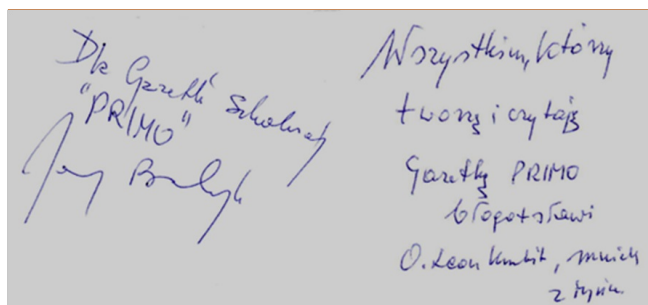 Dla Gazetki Szkolnej
"PRIMO"
Jerzy
Wszystkim, którzy
tworzą i czytają
Gazetkę PRIMO
błogosławi
O. Leon Knabit, mnich
z Tyńca